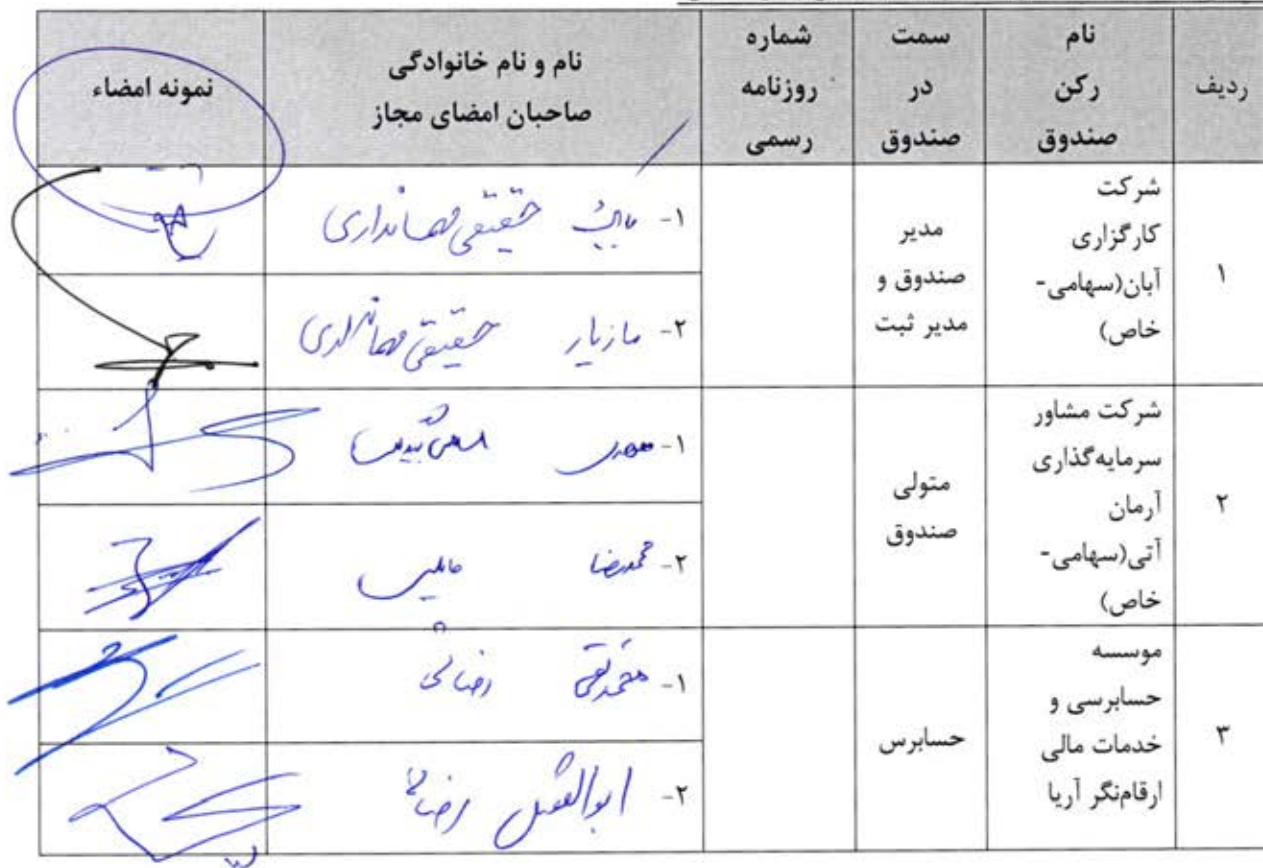 ردیف
نام
رکن
صندوق
سمت
در
صندوق
شماره
روزنامه
رسمی
نام و نام خانوادگی
صاحبان امضای مجاز
نمونه امضاء
۱
شرکت
کارگزاری
آبان(سهامی-
خاص)
مدیر
صندوق و
مدیر ثبت
۱- بابک حقیقی مهمانداری
۲- مازیار حقیقی مهمانداری
۲
شرکت مشاور
سرمایه‌گذاری
آرمان
آتی(سهامی-
خاص)
متولی
صندوق
۱- مهدی
۲- محمدرضا
۳
موسسه
حسابرسی و
خدمات مالی
ارقام‌نگر آریا
حسابرس
۱- محمدتقی رضائی
۲- ابوالفضل رضائی